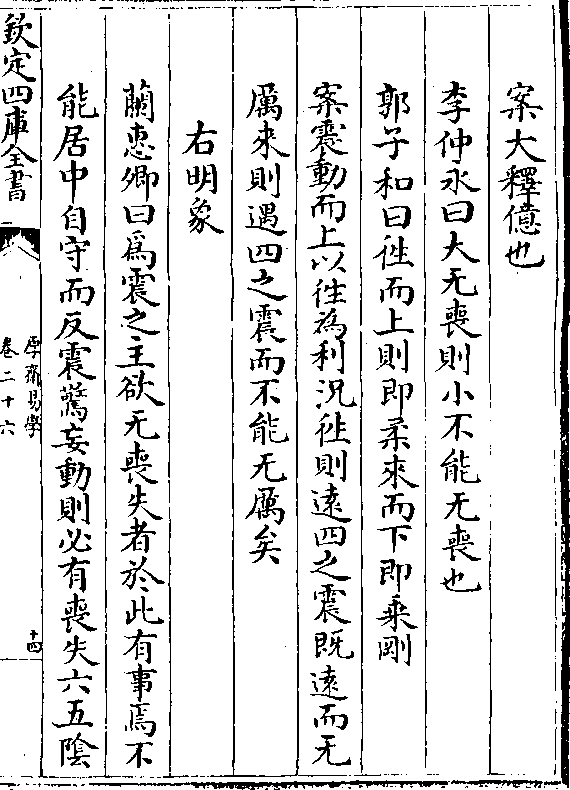 案大釋億也
李仲永曰大无喪則小不能无喪也
郭子和曰徃而上則即柔來而下即乗剛
案震動而上以徃為利況徃則遠四之震既遠而无
厲來則遇四之震而不能无厲矣
右明象
蘭惠卿曰爲震之主欲无喪失者於此有事焉不
能居中自守而反震驚妄動則必有喪失六五陰
欽定四庫全書
厚齋易學
卷二十六
十四